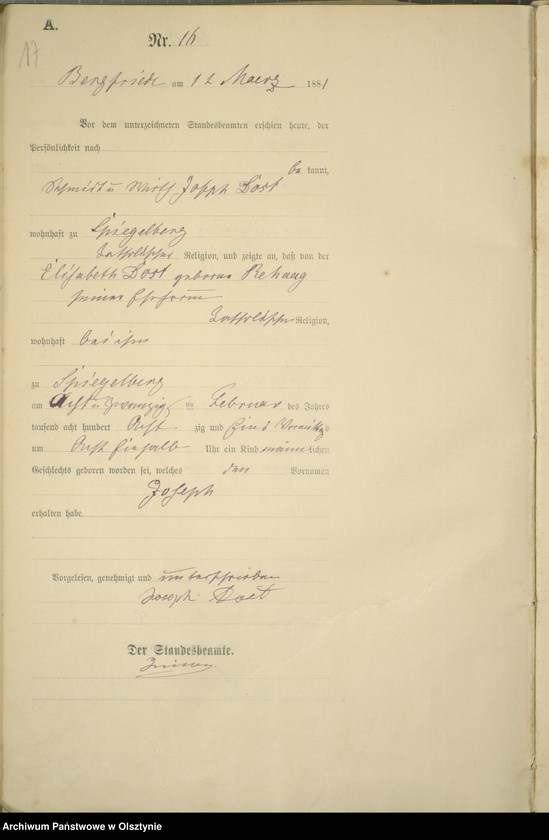 A.
17
Nr. 16
Bergfriede am 12 Maerz 1881
Vor dem unterzeichneten Standesbeamten erschien heute, der
Persönlichkeit nach
be kannt,
Schmidt u Wirth Joseph Dost
wohnhaft zu Spiegelberg
katholischer Religion, und zeigte an, daß von der
Elisabeth Dost geborne Rehaag
seiner Ehefrau
katholischer Religion,
wohnhaft bei ihm
zu Spiegelberg
am Acht u zwanzig ten Februar des Jahres
tausend acht hundert Acht zig und Eins Vormittgs
um Acht einhalb Uhr ein Kind männ lichen
Geschlechts geboren worden sei, welches den Vornamen
Joseph
erhalten habe
Vorgelesen, genehmigt und unterschrieben
Joseph Dost
Der Standesbeamte.
Archiwum Państwowe w Olsztynie